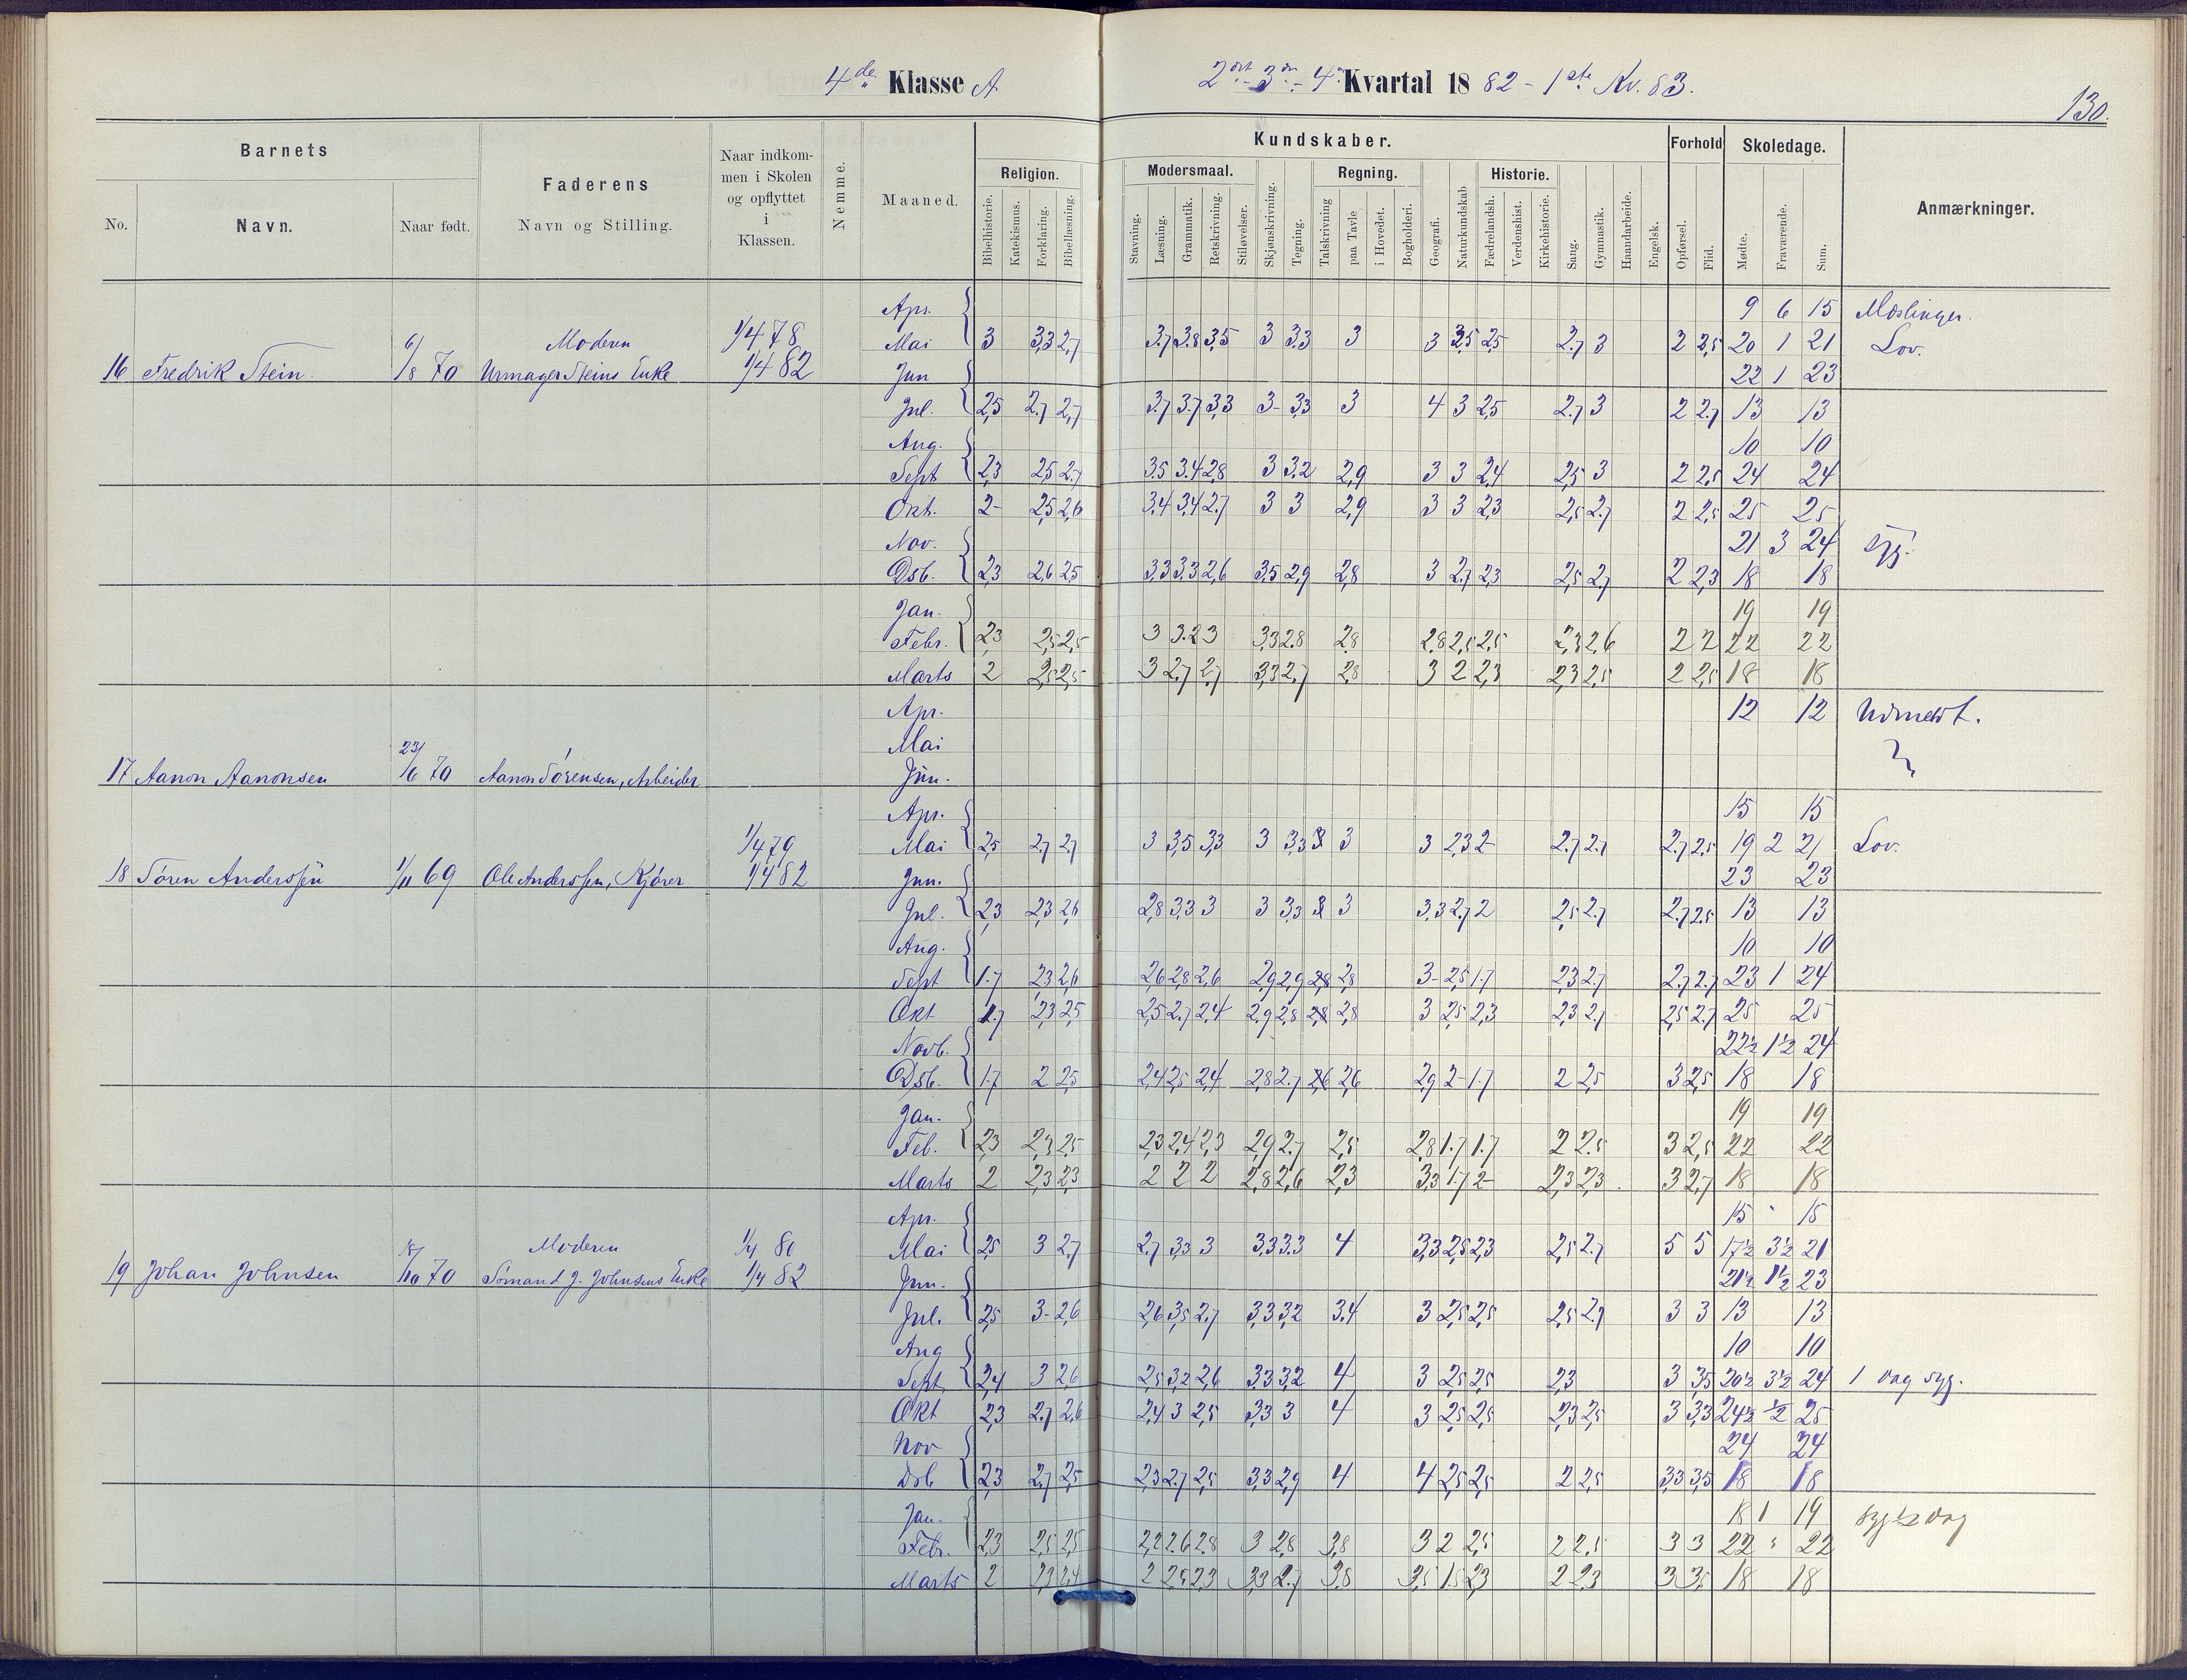 4de Klasse A
2det 3die 4de Kvartal 1882 - 1ste Kv. 83.
130.
Barnets
Faderens
Naar indkommen i Skolen og opflyttet i Klassen.
Nemme.
Maaned.
Kundskaber.
Forhold
Skoledage.
Anmærkninger.
No. Navn. Naar født. Navn og Stilling.
Religion. Modersmaal. Regning. Historie.
Bibelhistorie. Katekismus. Forklaring. Bibellæsning. Stavning. Læsning. Grammatik. Retskrivning. Stiløvelser. Skjønskrivning. Tegning. Talskrivning paa Tavle i Hovedet. Bogholderi. Geografi. Naturkundskab Fædrelandsh. Verdenshist. Kirkehistorie. Sang. Gymnastik. Haandarbeide. Engelsk. Opførsel. Flid. Mødte. Fraværende. Sum.
Apr. 9 6 15 Mæslinger.
Moderen 1/4 78 Mai 3 3,3 2,7 3.7 3.8 3,5 3 3,3 3 3 3,5 2,5 2.7 3 2 2,5 20 1 21 Lov.
16 Fredrik Stein. 6/8 70 Urmager Steins Enke 1/4 82 Jun 22 1 23
Jul. 2,5 2.7 2,7 3.7 3.7 3,3 3- 3,3 3 4 3 2,5 2.7 3 2 2.7 13 13
Aug. 10 10
Sept 2,3 2,5 2.7 3.5 3.4 2,8 3 3,2 2,9 3 3 2,4 2,5 3 2 2,5 24 24
Okt. 2- 2,5 2,6 3,4 3,4 2.7 3 3 2,9 3 3 2,3 2,5 2.7 2 2,5 25 25
Nov. 21 3 24 Syg.
Dsb. 2,3 2,6 2,5 3,3 3,3 2,6 3,5 2,9 2,8 3 2.7 2,3 2,5 2,7 2 2,3 18 18
Jan. 19 19
Febr. 2,3 2,5 2,5 3 3.2 3 3,3 2.8 2,8 2,8 2,5 2,5 2,3 2,6 2 2 22 22
Marts 2 2,5 2,5 3 2,7 2,7 3,3 2,7 2,8 3 2 2,3 2,3 2,5 2 2,5 18 18
Apr. 12 12 Udmeldt.
Mai
17 Aanon Aanonsen 23/6 70 Aanon Sørensen, Arbeider Jun.
Apr. 15 15
1/4 79 Mai 2,5 2.7 2.7 3 3,5 3,3 3 3,3 3 3 2,3 2- 2.7 2.7 2.7 2,5 19 2 21 Lov.
18 Søren Anderssen 1/11 69 Ole Anderssen, Kjører 1/4 82 Jun. 23 23
Jul. 2,3 2,3 2,6 2,8 3,3 3 3 3,3 3 3,3 2.7 2 2,5 2.7 2.7 2,5 13 13
Aug. 10 10
Sept 1.7 2,3 2,6 2,6 2,8 2,6 2,9 2,9 2,8 3- 2,5 1.7 2,3 2.7 2.7 2.7 23 1 24
Okt 1.7 2,3 2,5 2,5 2.7 2,4 2,9 2,8 2,8 3 2,5 2,3 2,3 2.7 2,5 2.7 25 25
Novb. 22½ 1½ 24
Dsb. 1.7 2 2,5 2,4 2,5 2,4 2,8 2.7 2,6 2,9 2- 1.7 2 2,5 3 2,5 18 18
Jan. 19 19
Feb. 2,3 2,3 2,5 2,3 2,4 2,3 2,9 2.7 2,5 2,8 1.7 1.7 2 2.5 3 2,5 22 22
Marts 2 2,3 2,3 2 2 2 2,8 2,6 2,3 3,3 1.7 2- 2,3 2,3 3 2,7 18 18
Apr. 15 15
Moderen 1/4 80 Mai 2,5 3 2,7 2.7 3,3 3 3,3 3.3 4 3,3 2,5 2,3 2,5 2.7 5 5 17½ 3½ 21
19 Johan Johnsen 18/10 70 Sømand J. Johnsens Enke 1/4 82 Jun. 21½ 1½ 23
Jul. 2,5 3- 2,6 2,6 3,5 2.7 3,3 3,2 3.4 3 2,5 2,5 2,5 2.7 3 3 13 13
Aug 10 10
Sept. 2,4 3 2,6 2,5 3,2 2,6 3,3 3,2 4 3 2,5 2,5 2,3 3 3,5 20½ 3½ 24 1 dag syg.
Okt 2,3 2.7 2,6 2,4 3 2,5 3,3 3 4 3 2,5 2,5 2,3 2,5 3 3,3 24½ ½ 25
Nov 24 24
Dsb 2,3 2,7 2,5 2,3 2.7 2,5 3,3 2,9 4 4 2,5 2,5 2 2,5 3,3 3,5 18 18
Jan. 18 1 19 syg ½ dag
Febr. 2,3 2,5 2,5 2,2 2.6 2.8 3 2,8 3,8 3 2 2,5 2 2.5 3 3 22 22
Marts 2 2,3 2,4 2 2,5 2,3 3,3 2.7 3,8 3,5 1.5 2,3 2 2,3 3 3,5 18 18